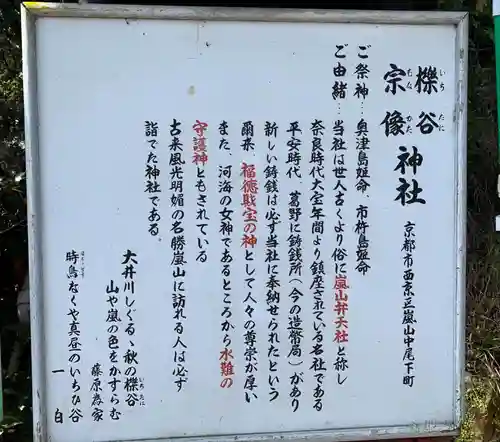 櫟谷
いち たに
宗像
むな かた
神社
京都市西京区嵐山中尾下町
ご祭神…奥津島姫命、市杵島姫命
ご由緒…当社は世人古くより俗に嵐山弁天社と称し
奈良時代大宝年間より鎮座されている名社である
平安時代、葛野に鋳銭所(今の造幣局)があり
新しい鋳銭は必ず当社に奉納せられたという
爾来、福徳財宝の神として人々の尊崇が厚い
また、河海の女神であるところから水難の
守護神ともされている
古来風光明媚の名勝嵐山に訪れる人は必ず
詣でた神社である。
大井川しぐるゝ秋の櫟谷
いちたに
山や嵐の色をかすらむ
藤原為家
時鳥なくや真昼のいちひ谷
ほととぎす
一白